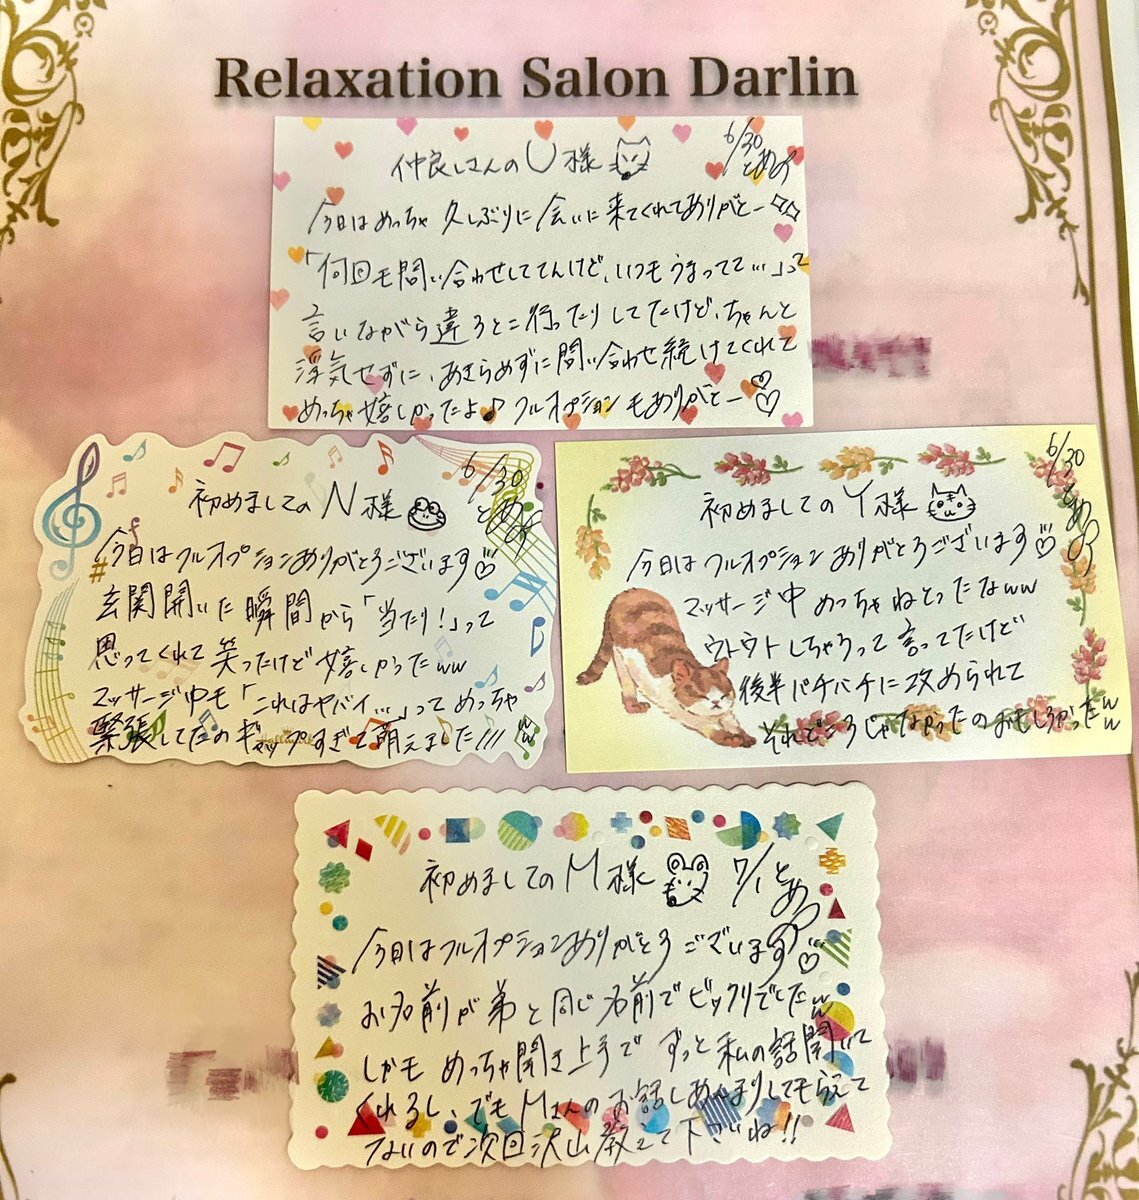 Relaxation Salon Darlin
6/30
とあ
仲良しさんのU様
今日はめっちゃ久しぶりに会いに来てくれてありがとー
「何回も問い合わせしてんけど、いつもうまってて…」って
言いながら違うとこ行ったりしてたけど、ちゃんと
浮気せずに、あきらめずに問い合わせ続けてくれて
めっちゃ嬉しかったよ♪ フルオプションもありがとー♡♡
6/30
とあ
初めましてのN様
今日はフルオプションありがとうございます♡
玄関開いた瞬間から「当たり!」って
思ってくれて笑ったけど嬉しかったww
マッサージ中も「これはヤバイ…」ってめっちゃ
緊張してたのギャップすぎて萌えました!!!ww
6/30
とあ
初めましてのY様
今日はフルオプションありがとうございます♡
マッサージ中めっちゃねとったなww
ウトウトしちゃうって言ってたけど
後半バチバチに攻められて
それどころじゃなかったのおもしろかったww
初めましてのM様 7/1 とあ
今日はフルオプションありがとうございます♡
お名前が弟と同じ名前でビックリでしたww
しかもめっちゃ聞き上手でずっと私の話聞いて
くれるし、でもMさんのお話しあんまりしてもらえて
ないので次回沢山教えて下さいね!!